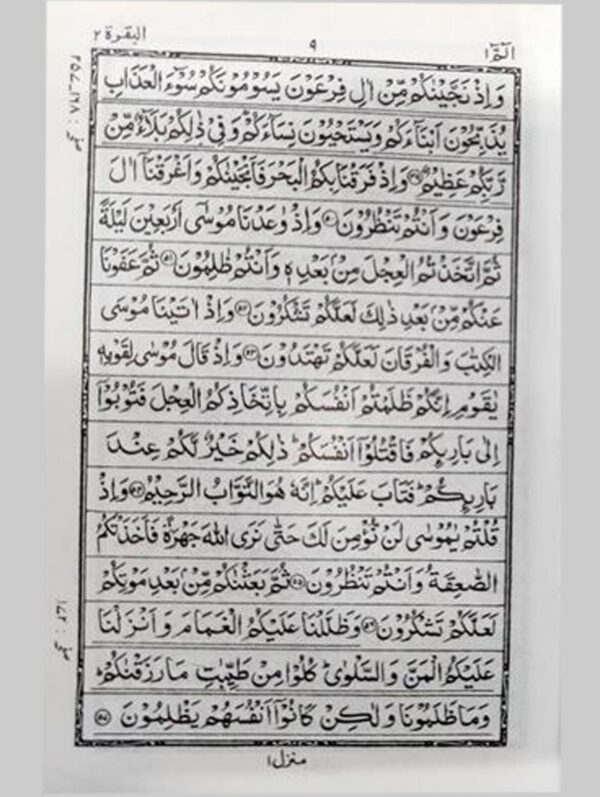 الٓمّٓ ١ ٩ البقرة ٢
وَاِذْ نَجَّيْنٰكُمْ مِّنْ اٰلِ فِرْعَوْنَ يَسُوْمُوْنَكُمْ سُوْٓءَ الْعَذَابِ
يُذَبِّحُوْنَ اَبْنَآءَكُمْ وَيَسْتَحْيُوْنَ نِسَآءَكُمْ وَفِيْ ذٰلِكُمْ بَلَآءٌ مِّنْ
رَّبِّكُمْ عَظِيْمٌ ﴿٤٩﴾ وَاِذْ فَرَقْنَا بِكُمُ الْبَحْرَ فَاَنْجَيْنٰكُمْ وَاَغْرَقْنَآ اٰلَ
فِرْعَوْنَ وَاَنْتُمْ تَنْظُرُوْنَ ﴿٥٠﴾ وَاِذْ وٰعَدْنَا مُوْسٰٓى اَرْبَعِيْنَ لَيْلَةً
ثُمَّ اتَّخَذْتُمُ الْعِجْلَ مِنْۢ بَعْدِهٖ وَاَنْتُمْ ظٰلِمُوْنَ ﴿٥١﴾ ثُمَّ عَفَوْنَا
عَنْكُمْ مِّنْۢ بَعْدِ ذٰلِكَ لَعَلَّكُمْ تَشْكُرُوْنَ ﴿٥٢﴾ وَاِذْ اٰتَيْنَا مُوْسَى
الْكِتٰبَ وَالْفُرْقَانَ لَعَلَّكُمْ تَهْتَدُوْنَ ﴿٥٣﴾ وَاِذْ قَالَ مُوْسٰى لِقَوْمِهٖ
يٰقَوْمِ اِنَّكُمْ ظَلَمْتُمْ اَنْفُسَكُمْ بِاتِّخَاذِكُمُ الْعِجْلَ فَتُوْبُوْٓا
اِلٰى بَارِئِكُمْ فَاقْتُلُوْٓا اَنْفُسَكُمْ ؕ ذٰلِكُمْ خَيْرٌ لَّكُمْ عِنْدَ
بَارِئِكُمْ ؕ فَتَابَ عَلَيْكُمْ ؕ اِنَّهٗ هُوَ التَّوَّابُ الرَّحِيْمُ ﴿٥٤﴾ وَاِذْ
قُلْتُمْ يٰمُوْسٰى لَنْ نُّؤْمِنَ لَكَ حَتّٰى نَرَى اللّٰهَ جَهْرَةً فَاَخَذَتْكُمُ
الصّٰعِقَةُ وَاَنْتُمْ تَنْظُرُوْنَ ﴿٥٥﴾ ثُمَّ بَعَثْنٰكُمْ مِّنْۢ بَعْدِ مَوْتِكُمْ
لَعَلَّكُمْ تَشْكُرُوْنَ ﴿٥٦﴾ وَظَلَّلْنَا عَلَيْكُمُ الْغَمَامَ وَاَنْزَلْنَا
عَلَيْكُمُ الْمَنَّ وَالسَّلْوٰى ؕ كُلُوْا مِنْ طَيِّبٰتِ مَا رَزَقْنٰكُمْ ؕ
وَمَا ظَلَمُوْنَا وَلٰكِنْ كَانُوْٓا اَنْفُسَهُمْ يَظْلِمُوْنَ ﴿٥٧﴾
منزل ١